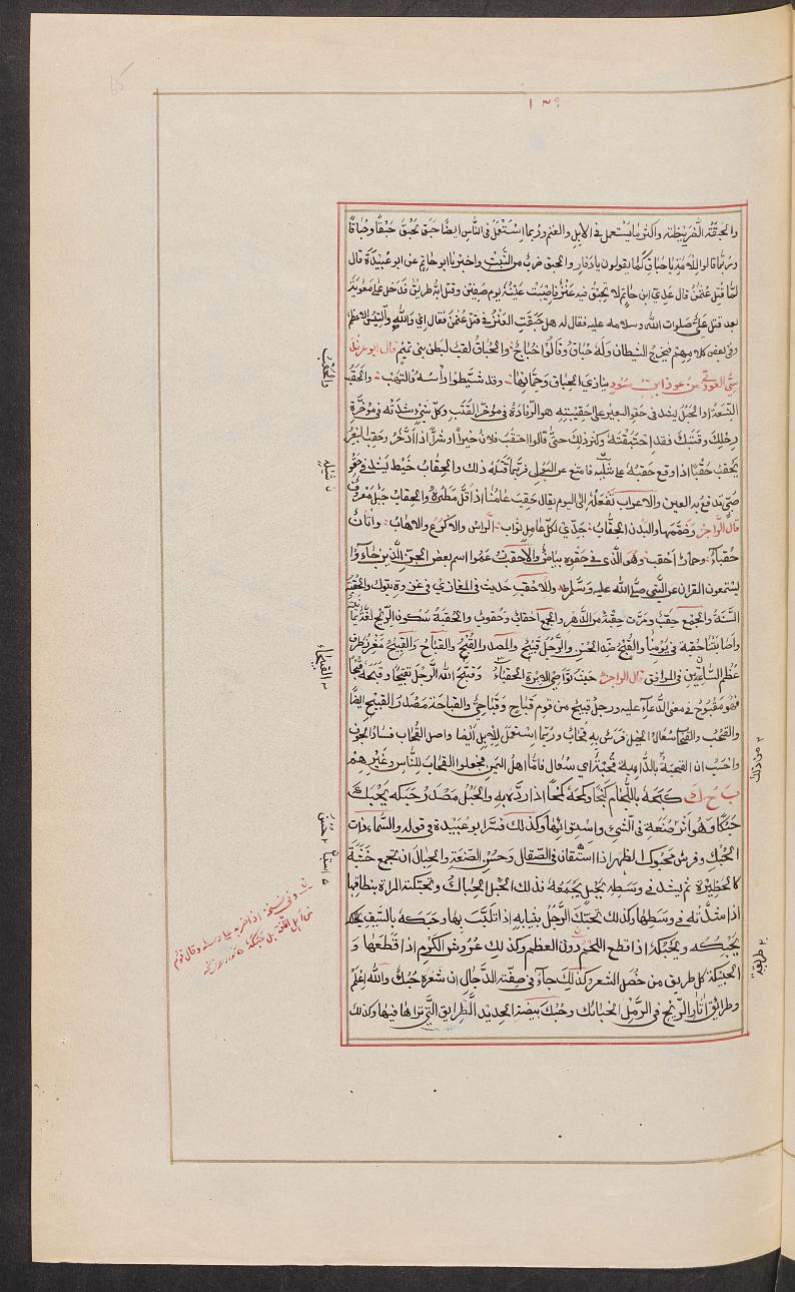 ١٣٩
والحبقة الضريطة واكثر ما يستعمل في الابل والغنم وربما استعمل في الناس ايضا حبق يحبق حبقا وحباقا
وربما قالوا للامة يا حباق كما يقولون يا دفار والحبق ضرب من النبت واخبرنا ابو حاتم عن ابو عبيدة قال
لما قتل عثمن قال عدي ابن حاتم لا تحبق فيه عنز فاصيبت عينه يوم صفين وقتل ابنه طريف فدخل على معوية
بعد قتل علي صلوات الله وسلامه عليه فقال له هل حبقت العنز في قتل عثمن فقال اي والله والتيس الاعظم
وفي بعض كلامهم فيخرج الشيطان وله حباق وقالوا حباج والحباق لقب لبطن بني تميم قال ابو عرندة
من عوذ ابن سود ينادي الحباق وحمانها وقد شيطوا راسه فالتهب والحقب
النسعة او الحبل يشد في حقو البعير على حقيبته هو الرفادة في مؤخر القتب وكل شيء شددته في مؤخرة
رحلك وقتبك فقد احتقبته وكثر ذلك حتى قالوا احتقب فلان خيرا او شرا اذا ادخر وحقب البعير
يحقب حقبا اذا وقع حقبه على ثيله فامتنع عن البول فربما قتله ذلك والحقاب خيط يشد في حقو
صبي تدفع به العين والاعراب تفعله الى اليوم يقال حقب عامنا اذا قل مطره والحقاب جبل معروف
قال الراجز وضمها والبدن الحقاب جدي لكل عامل ثواب الراس والاكرع والاهاب واتان
حقباء وحمار احقب وهو الذي في حقوه بياض والاحقب عموا اسم بعض الجن الذين جاءوا
يستمعون القران عن النبي صلى الله عليه وسلم وللاحقب حديث في المغازي في غزوة تبوك والحقبة
السنة والجمع حقب ومرت حقبة من الدهر والجمع احقاب وحقوب والحقبة سكون الريح لغة
واصابتنا حقبة في يومنا والقبح ضد الحسن والرجل قبيح والمصدر القبح والقباح والقبيح مغرز طرف
عظم الساعدين في المرافق قال الراجز حيث تواصي الابرة القبيحا وقبح الله الرجل تقبيحا وقبحه قبحا
فهو مقبوح في معنى الدعاء عليه ورجل قبيح من قوم قباح وقباحى والقباحة مصدر القبيح ايضا
والقحب والقحاب سعال الخيل فرس به قحاب وربما استعمل للابل ايضا واصل القحاب فساد الجوف
واحسب ان القحبة بالدامية قحبة اي سعال فاما اهل اليمن فجعلوا القحاب للناس وغيرهم
ب ح ك كبحه باللجام كبحا وكمحه كمحا اذا رده به والحبك مصدر حبكه يحبك
حبكا وهو اثر صنعة في الشيء واستوائها وكذلك فسر ابو عبيدة في قوله والسماء ذات
الحبك وفرس محبوك الظهر اذا استتقان في الصقال وحسن الصنعة والحباك ان تجمع خشبة
كالحظيرة ثم يشد في وسطه بحبل يجمعه فذلك الحبل الحباك وتحبكت المراة بنطاقها
اذا شدته في وسطها وكذلك تحبك الرجل بثيابه اذا تلبب بها وحبكه بالسيف
يحبكه ويحبكه اذا قطع اللحم دون العظم وكذلك عروش الكرم اذا قطعها و
الحبيكة كل طريق من خصل الشعر وكذلك جاء في صفة الدجال ان شعره حبك والله اعلم
وطرائق اثار الريح في الرمل الحبائك وحبك بيضة الحديد الطرائق التي تراها فيها وكذلك
والحقب
ثيله
القبيحاء
من ذلك
حسن
طريقة
وفي نسخة اذا ضربه وقال قوم
من اهل اللغة بل